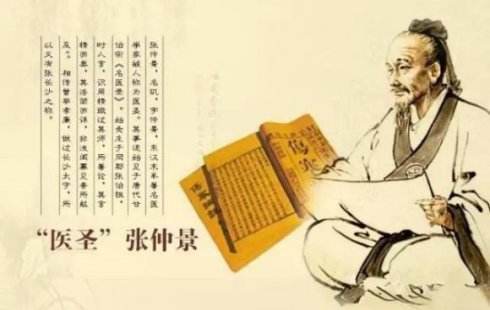 张仲景，名机，字仲景，东汉末年著名医
学家，被人称为医圣。其事迹始见于唐代甘
伯宗《名医录》，“始受术于同郡张伯祖，
时人言，识用精微过其师，所著论，其言
精而奥，其法简而详，非浅闻寡见者所能
及”。相传曾举孝廉，做过长沙太守，所
以又有张长沙之称。
“医圣”张仲景